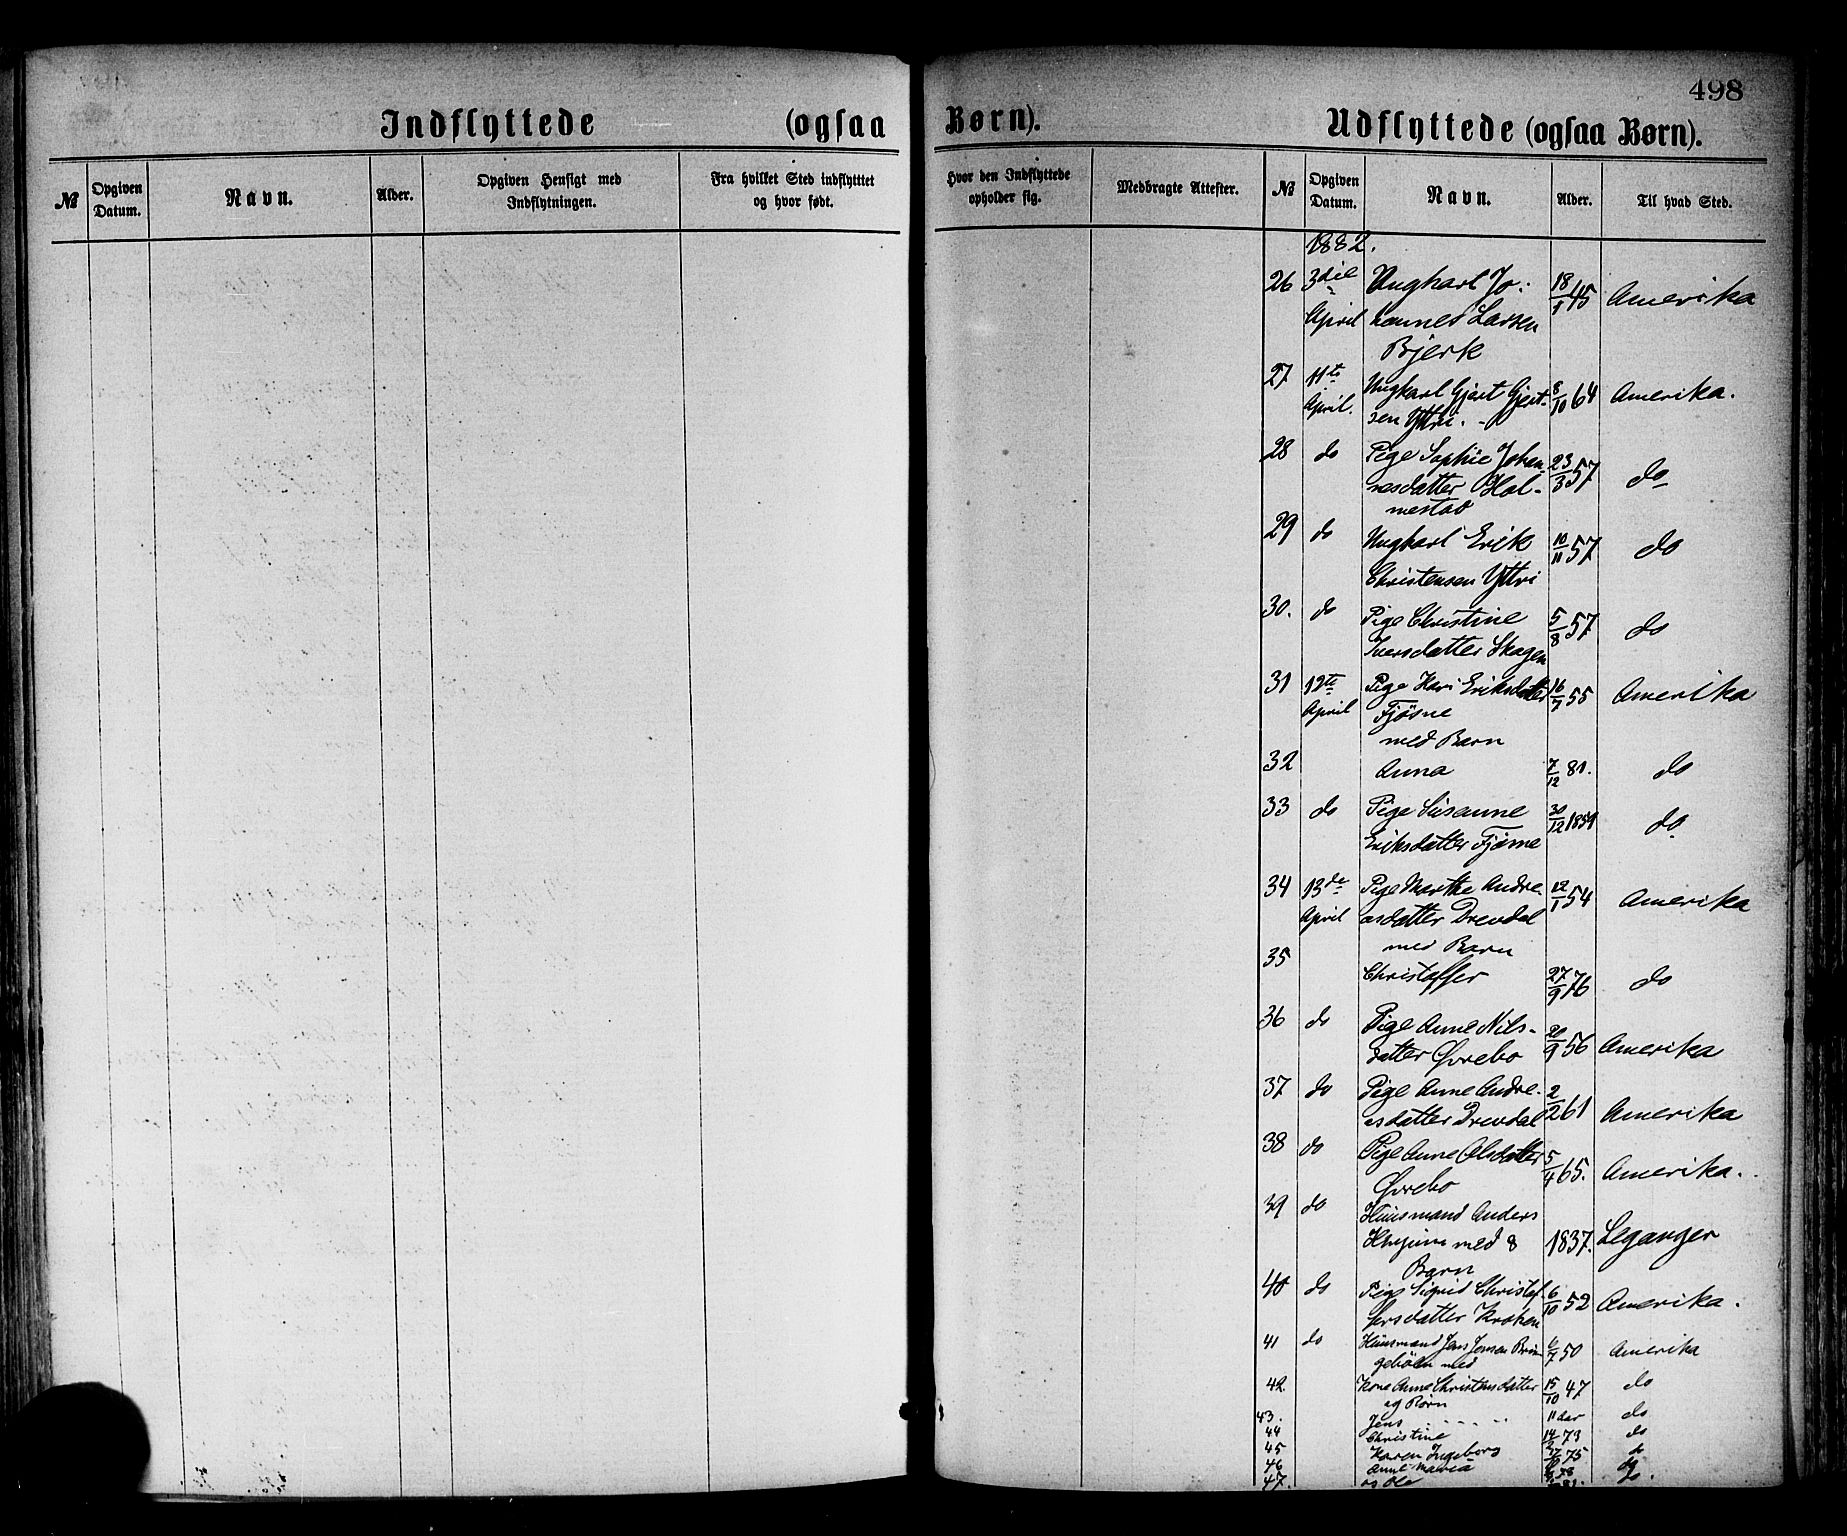 498
Indflyttede (ogsaa Børn).
Udflyttede (ogsaa Børn).
№ Opgiven Datum. Navn. Alder. Opgiven Hensigt med Indflytningen. Fra hvilket Sted indflytttet og hvor født. Hvor den Indflyttede opholder sig. Medbragte Attester.
№ Opgiven Datum. Navn. Alder. Til hvad Sted.
1882.
26 3die Ungkarl Jo: 18/1 45 Amerika
April hannes Larsen
Bjerk
27 11te Ungkarl Gjert Gjert- 8/10 64 Amerika.
April. sen Yttri.
28 do Pige Sophie Johan- 23/3 57 do
nesdatter Hol-
mestad
29 do Ungkarl Erik 10/11 57 do
Christensen Yttri
30. do Pige Christine 5/8 57 do
Iversdatter Skagen
31 12te Pige Kari Eriksdatter 16/7 55 Amerika
April Fjösne
med Barn
32 Anna 7/12 81. do
33 do Pige Susanne 30/12 1859 do
Eriksdatter Fjösne
34 13de Pige Marthe Andre- 12/1 54 Amerika
April asdatter Drevdal
med Barn
35 Christoffer 27/9 76 do
36 do Pige Anne Nils- 20/9 56 Amerika
datter Øvrebo
37 do Pige Anne Andre- 2/2 61 Amerika
asdatter Drevdal
38 do Pige Anne Olsdatter 5/4 65. Amerika.
Øvrebo
39 do Huusmand Anders
med 8 1837. Leganger
Børn
40 do Pige Sigrid Christof- 6/10 52 Amerika.
fersdatter Kroken
41 do Huusmand Jens Jensen 6/7 50 Amerika
med
42. Kone Anne Christensdatter 15/10 47 do
og Børn
43. Jens 11 Aar do
44 Christine 73 do
45 Karen Ingeborg 75 do
46 Anne Maria 78 do
47. og Ole 81. do.